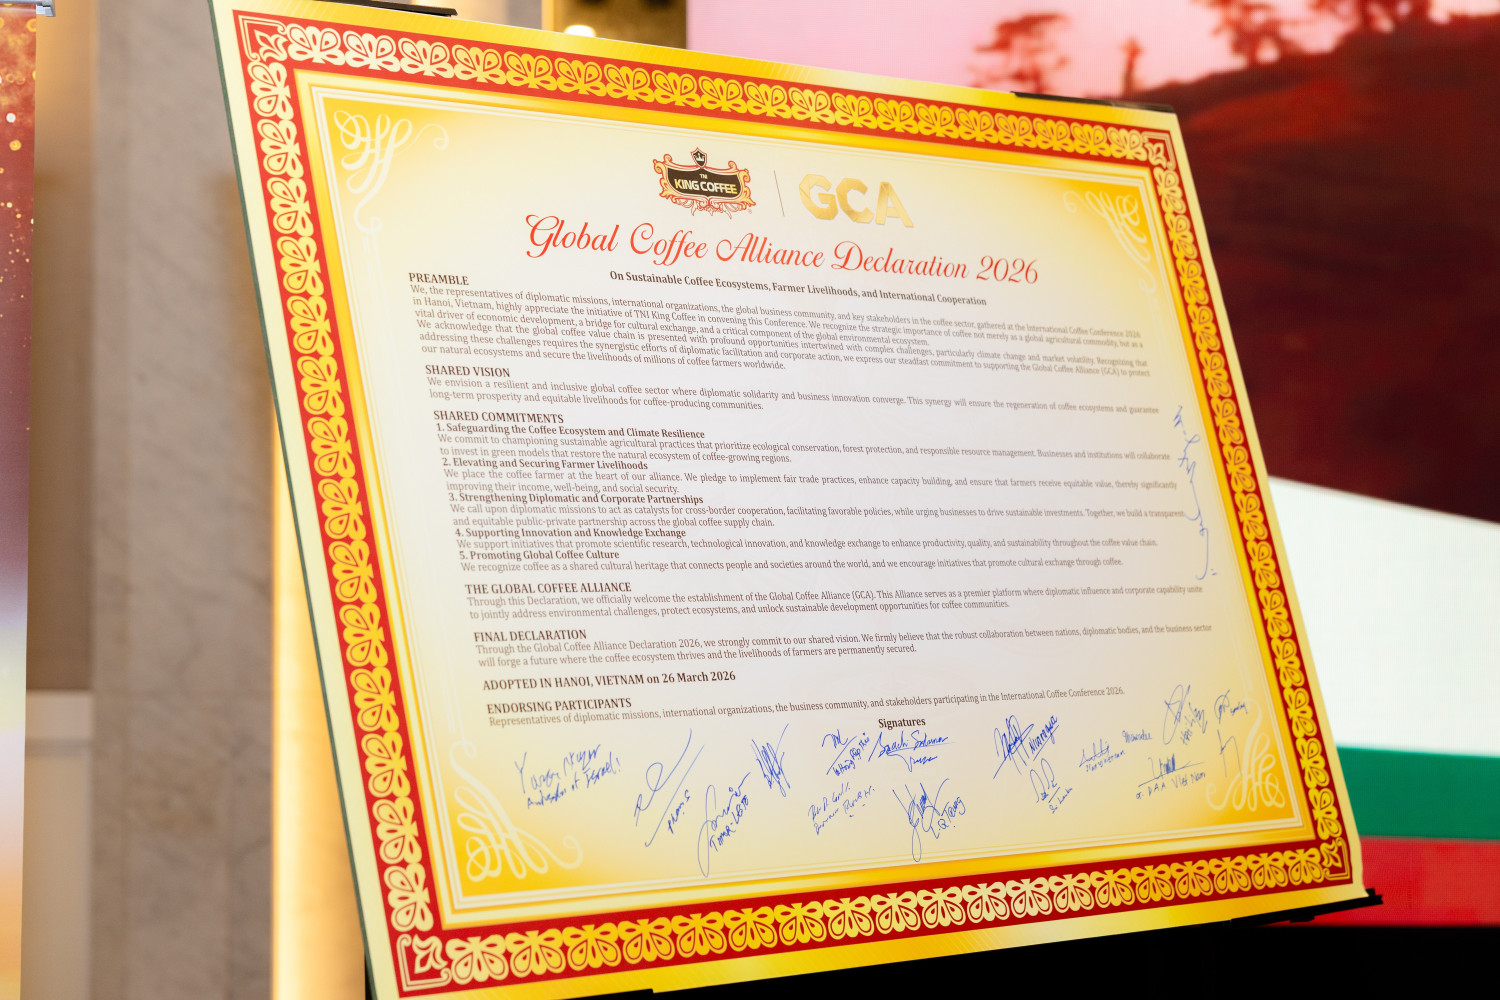 TNI
KING COFFEE
GCA
Global Coffee Alliance Declaration 2026
On Sustainable Coffee Ecosystems, Farmer Livelihoods, and International Cooperation
PREAMBLE
We, the representatives of diplomatic missions, international organizations, the global business community, and key stakeholders in the coffee sector, gathered at the International Coffee Conference 2026
in Hanoi, Vietnam, highly appreciate the initiative of TNI King Coffee in convening this Conference. We recognize the strategic importance of coffee not merely as a global agricultural commodity, but as a
vital driver of economic development, a bridge for cultural exchange, and a critical component of the global environmental ecosystem.
We acknowledge that the global coffee value chain is presented with profound opportunities intertwined with complex challenges, particularly climate change and market volatility. Recognizing that
addressing these challenges requires the synergistic efforts of diplomatic facilitation and corporate action, we express our steadfast commitment to supporting the Global Coffee Alliance (GCA) to protect
our natural ecosystems and secure the livelihoods of millions of coffee farmers worldwide.
SHARED VISION
We envision a resilient and inclusive global coffee sector where diplomatic solidarity and business innovation converge. This synergy will ensure the regeneration of coffee ecosystems and guarantee
long-term prosperity and equitable livelihoods for coffee-producing communities.
SHARED COMMITMENTS
1. Safeguarding the Coffee Ecosystem and Climate Resilience
We commit to championing sustainable agricultural practices that prioritize ecological conservation, forest protection, and responsible resource management. Businesses and institutions will collaborate
to invest in green models that restore the natural ecosystem of coffee-growing regions.
2. Elevating and Securing Farmer Livelihoods
We place the coffee farmer at the heart of our alliance. We pledge to implement fair trade practices, enhance capacity building, and ensure that farmers receive equitable value, thereby significantly
improving their income, well-being, and social security.
3. Strengthening Diplomatic and Corporate Partnerships
We call upon diplomatic missions to act as catalysts for cross-border cooperation, facilitating favorable policies, while urging businesses to drive sustainable investments. Together, we build a transparent
and equitable public-private partnership across the global coffee supply chain.
4. Supporting Innovation and Knowledge Exchange
We support initiatives that promote scientific research, technological innovation, and knowledge exchange to enhance productivity, quality, and sustainability throughout the coffee value chain.
5. Promoting Global Coffee Culture
We recognize coffee as a shared cultural heritage that connects people and societies around the world, and we encourage initiatives that promote cultural exchange through coffee.
THE GLOBAL COFFEE ALLIANCE
Through this Declaration, we officially welcome the establishment of the Global Coffee Alliance (GCA). This Alliance serves as a premier platform where diplomatic influence and corporate capability unite
to jointly address environmental challenges, protect ecosystems, and unlock sustainable development opportunities for coffee communities.
FINAL DECLARATION
Through the Global Coffee Alliance Declaration 2026, we strongly commit to our shared vision. We firmly believe that the robust collaboration between nations, diplomatic bodies, and the business sector
will forge a future where the coffee ecosystem thrives and the livelihoods of farmers are permanently secured.
ADOPTED IN HANOI, VIETNAM on 26 March 2026
ENDORSING PARTICIPANTS
Representatives of diplomatic missions, international organizations, the business community, and stakeholders participating in the International Coffee Conference 2026.
Signatures
Ambassador of Israel!
Sri Lanka
Viet Nam